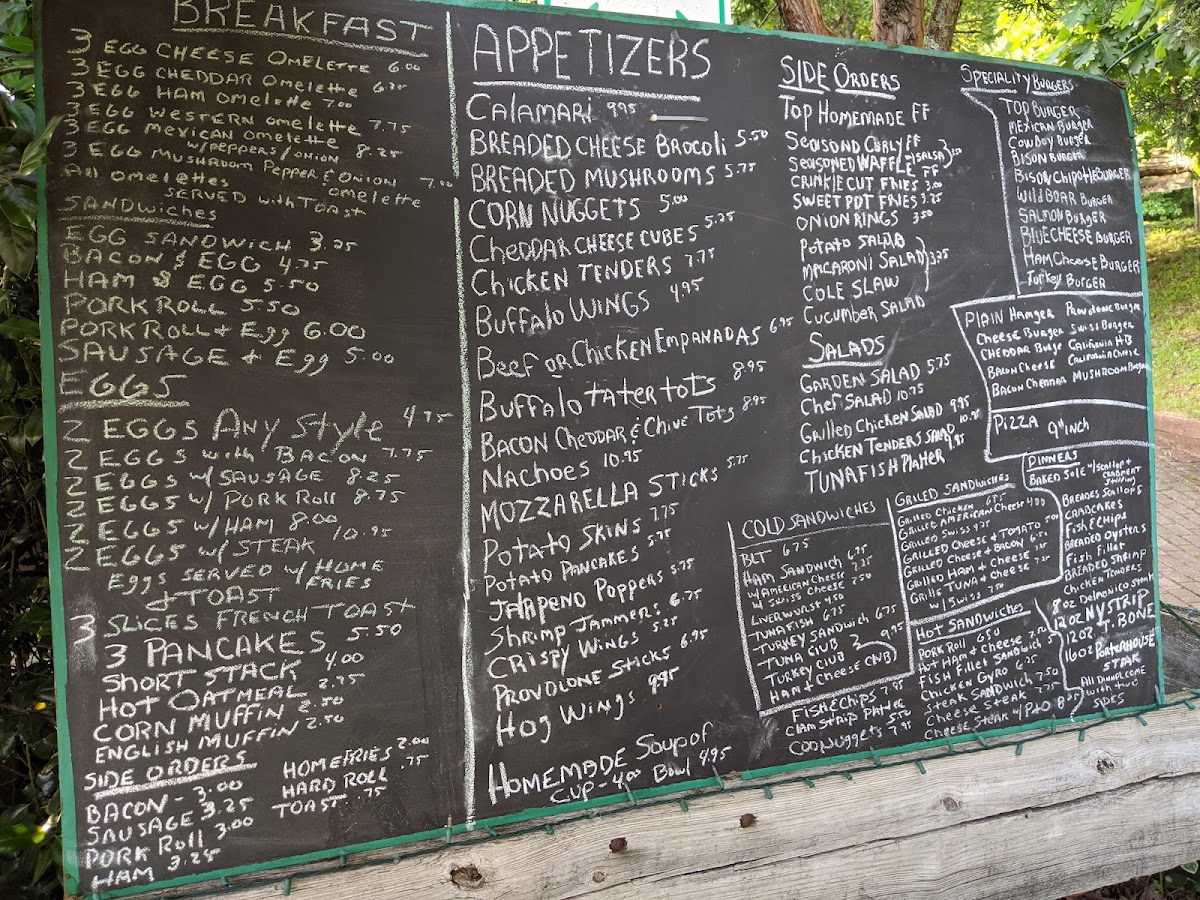 BREAKFAST
3 EGG CHEESE OMELETTE 6.00
3 EGG CHEDDAR OMELETTE 6.25
3 EGG HAM OMELETTE 7.00
3 EGG WESTERN OMELETTE 7.75
3 EGG MEXICAN OMELETTE 8.25
W/PEPPERS/ONION
3 EGG MUSHROOM PEPPER & ONION OMELETTE 7.00
All OMELETTES
SERVED WITH TOAST
SANDWICHES
EGG SANDWICH 3.25
BACON & EGG 4.75
HAM & EGG 5.50
PORK ROLL 5.50
PORK ROLL + Egg 6.00
SAUSAGE + Egg 5.00
EGGS
2 EGGS Any Style 4.75
2 EGGS with BACON 7.75
2 EGGS W/SAUSAGE 8.25
2 EGGS W/PORK Roll 8.75
2 EGGS W/HAM 8.00
2 EGGS W/STEAK 10.95
EGGS SERVED W/HOME
FRIES
& TOAST
3 SLICES FRENCH TOAST
3 PANCAKES 5.50
SHORT STACK 4.00
HOT OATMEAL 2.75
CORN MUFFIN 2.50
ENGLISH MUFFIN 2.50
SIDE ORDERS
BACON - 3.00
SAUSAGE 3.25
PORK Roll 3.00
HAM 3.25
HOMEFRIES 2.00
HARD ROLL .75
TOAST .75
APPETIZERS
CALAMARI 9.95
BREADED CHEESE BROCOLI 5.50
BREADED MUSHROOMS 5.75
CORN NUGGETS 5.00
CHEDDAR CHEESE CUBES 5.25
CHICKEN TENDERS 7.75
BUFFALO WINGS 4.95
Beef or Chicken EMPANADAS 6.95
BUFFALO TATER TOTS 8.95
BACON CHEDDAR & Chive Tots 8.95
NACHOES 10.95
MOZZARELLA STICKS 5.75
POTATO SKINS 7.75
POTATO PANCAKES 5.75
JALAPENO POPPERS 5.75
SHRIMP JAMMERS 6.75
CRISPY WINGS 5.25
PROVOLONE STICKS 6.95
HOG WINGS 9.95
HOMEMADE SOUP OF
CUP - 4.00 Bowl 4.95
SIDE ORDERS
TOP HOMEMADE FF
SEASOND CURLY FF
SEASONED WAFFLE FF
CRINKLE CUT FRIES 3.00
SWEET POT FRIES 3.25
ONION RINGS 3.50
POTATO SALAD
MACARONI SALAD 3.25
COLE SLAW
CUCUMBER SALAD
SALADS
GARDEN SALAD 5.75
Chef SALAD 10.75
Grilled Chicken SALAD 9.95
Chicken TENDERS SALAD 10.95
TUNAFISH Platter 9.95
SPECIALITY BURGERS
TOP BURGER
MEXICAN BURGER
COWBOY BURGER
BISON BURGER
BISON CHIPOTLE BURGER
WILD BOAR BURGER
SALMON BURGER
BLUE CHEESE BURGER
HAM CHEESE BURGER
TURKEY BURGER
PLAIN Hamger
Cheese Burger
CHEDDAR Burge
BACON CHEESE
BACON CHEDDAR
Provolone Burger
SWISS Burger
CALIFORNIA HB
CALIFORNIA Cheese
MUSHROOM Burger
PIZZA 9"inch
COLD SANDWICHES
BLT 6.75
HAM SANDWICH 6.75
W/AMERICAN CHEESE 7.25
W/SWISS CHEESE 7.50
LIVERWURST 4.50
TUNAFISH 6.75
TURKEY SANDWICH 6.75
TUNA CLUB
TURKEY CLUB 9.95
HAM & CHEESE CLUB
FISH & CHIPS 7.95
CLAM STRIP PLATTER
COD NUGGETS 7.95
GRILLED SANDWICHES
Grilled Chicken 6.75
Grilled AMERICAN Cheese 4.00
Grilled SWISS 4.25
GRILLED Cheese + TOMATO 5.00
Grilled Cheese + BACON 6.50
Grilled HAM + Cheese 7.25
Grille TUNA + Cheese
W/SWISS 7.50
HOT SANDWICHES
PORK Roll 6.50
HOT HAM & Cheese 7.50
FISH FILLET SANDWICH
CHICKEN GYRO 6.25
STEAK SANDWICH 7.50
Cheese STEAK 7.75
Cheese STEAK W/P&O 8.00
DINNERS
BAKED SOLE W/SCALLOP & CRABMEAT STUFFING
BREADED SCALLOPS
CRABCAKES
FISH & CHIPS
BREADED OYSTERS
FISH Fillet
BREADED SHRIMP
Chicken Tenders
8oz Delmonico STEAK
12oz NY STRIP
12oz T.BONE
16oz PORTERHOUSE
STEAK
All Dinners COME
with two
SIDES